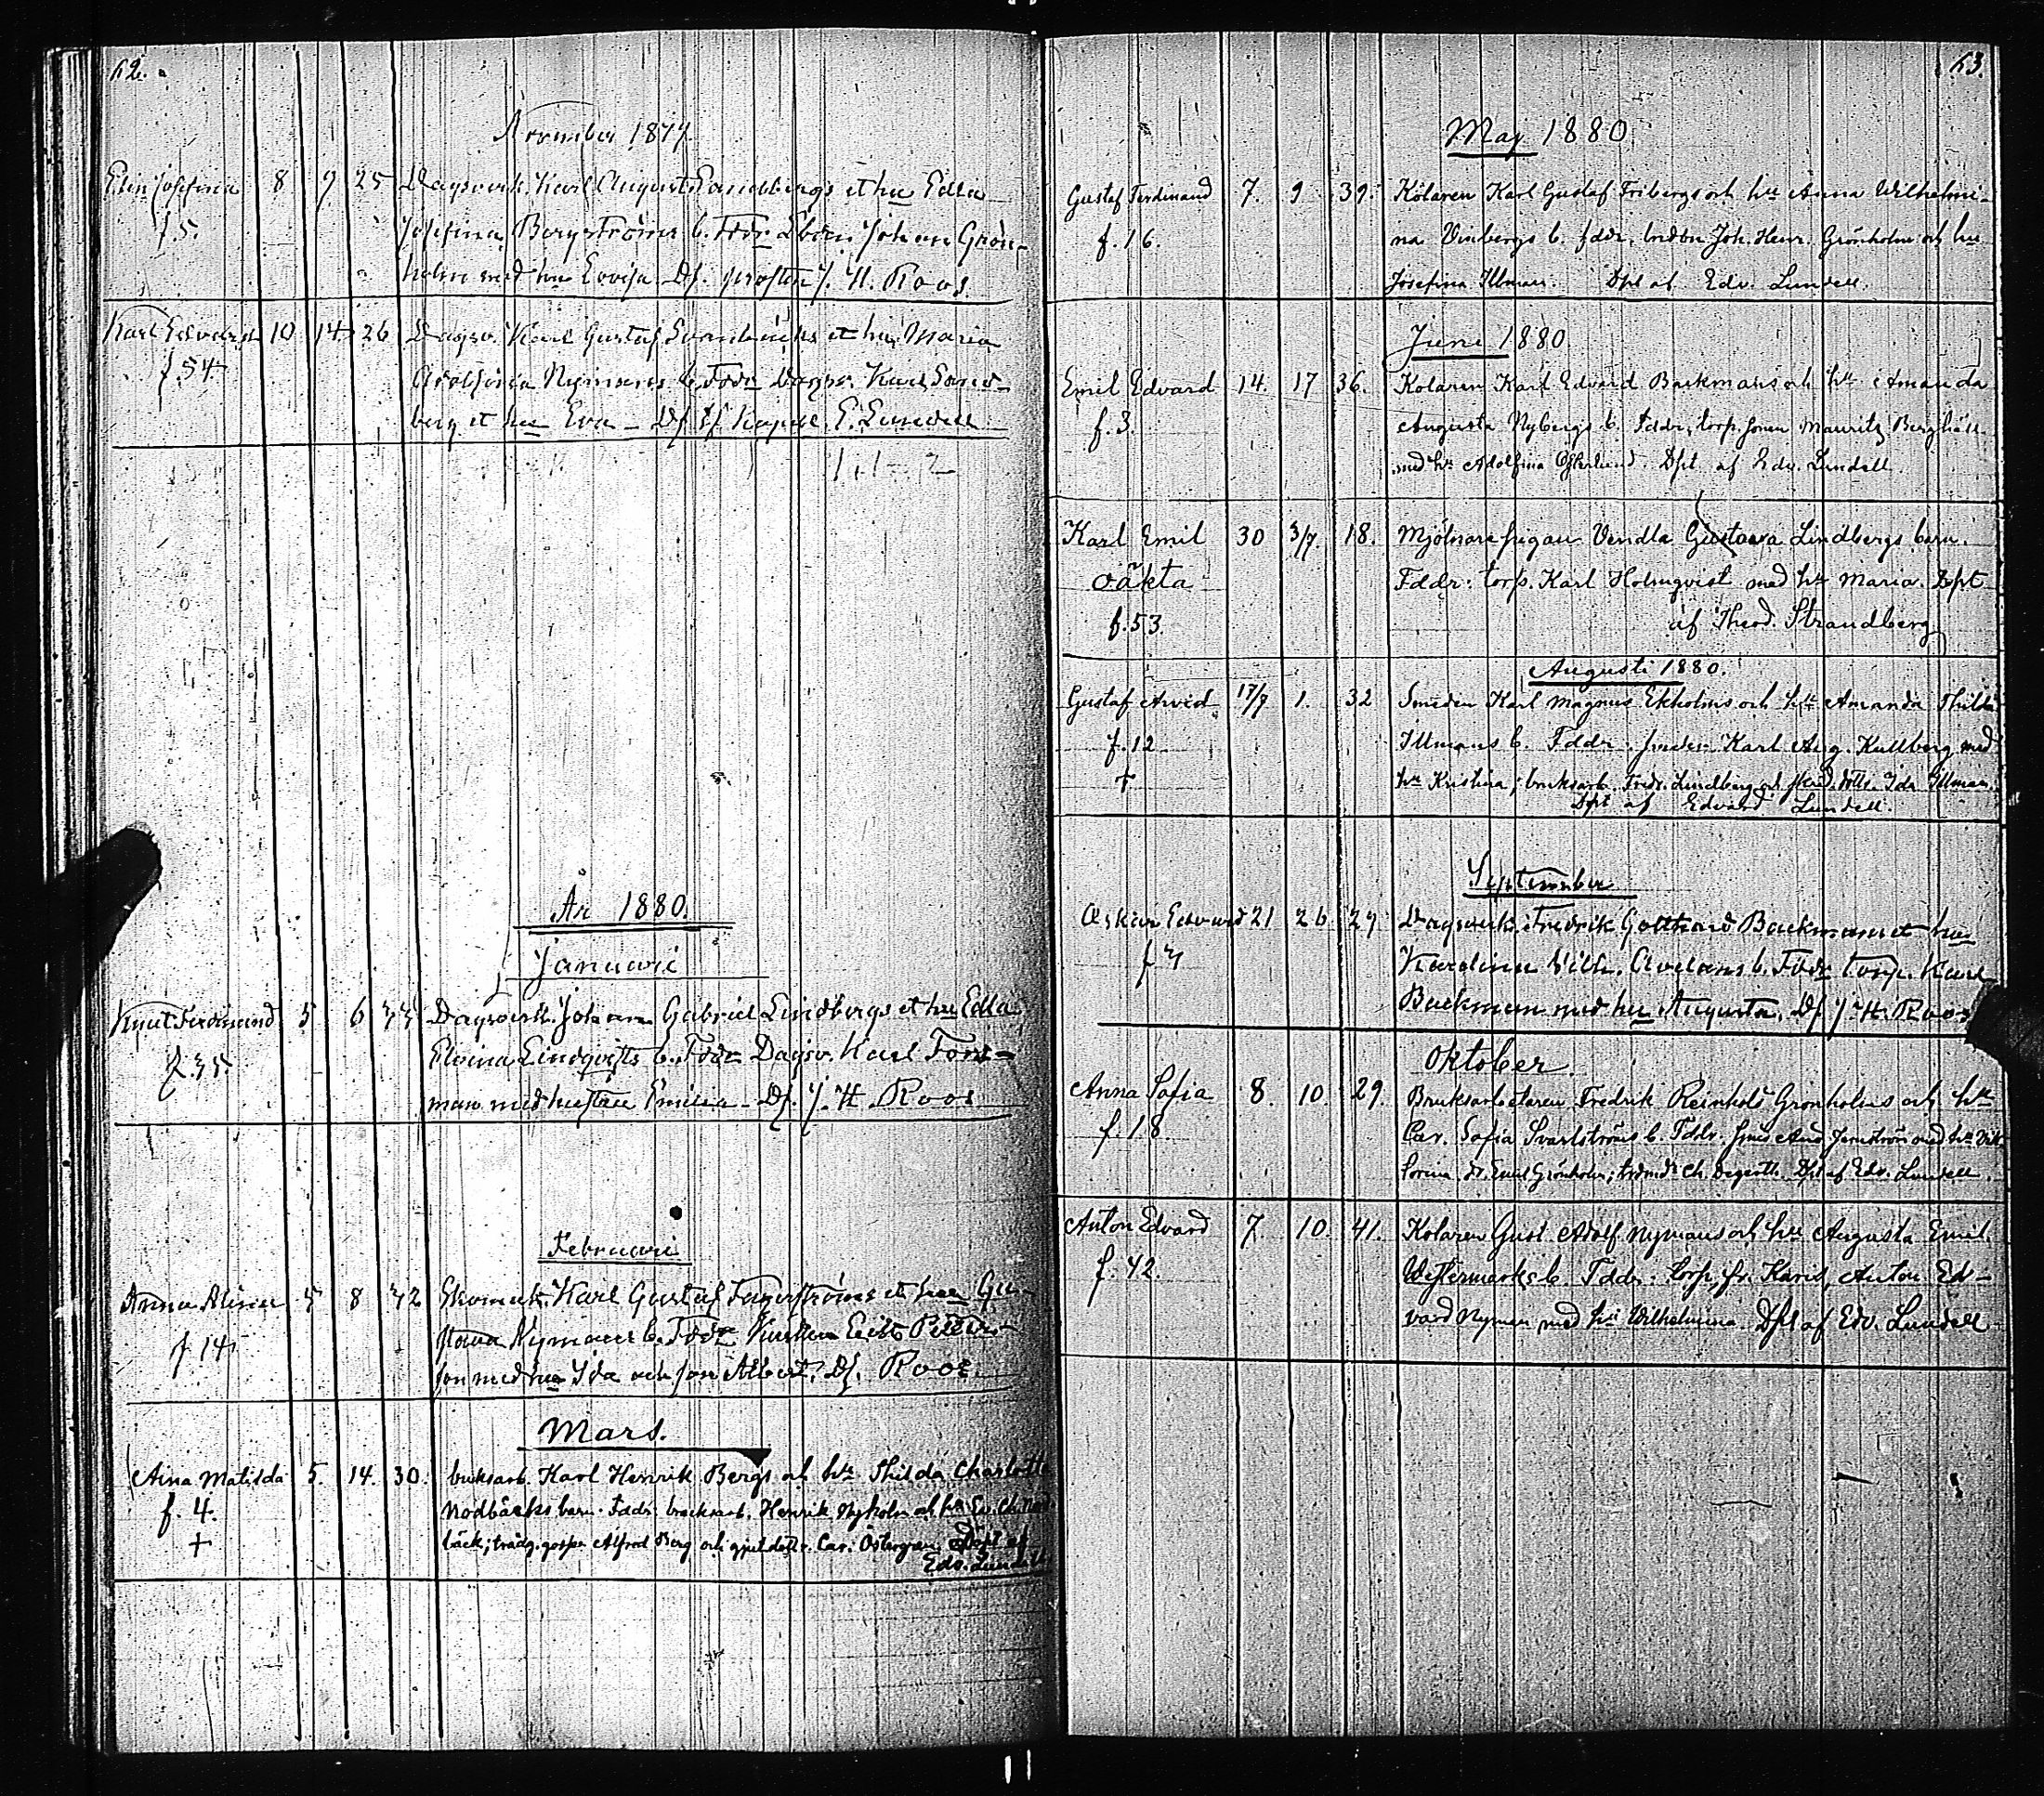 62.
November 1879.
Elin Josefina 8 9 25 Dagsverk. Karl August Sandbergs et hu Edla
f. 5. Josefina Bergströms b. Fddr Johan Grön-
holm med hu Lovisa Df. prosten J. H. Roos.
Karl Edvard 10 14 26 Dagsv. Karl Gustaf et hu Maria
f. 54 Adolfina Nymans b. Fddr Dagsv. Karl Sand-
berg et hu Eva – Df. Kapell. E. Lundell
1 + 1 – 2
År 1880.
Januari
Knut Ferdinand 5 6 33 Dagsverk. Johan Gabriel Lindbergs et hu Edla
f. 35 Elvina Lindqvists b. Fddr Dagsv. Karl Fors-
man med hustru Emilia – Df. J. H. Roos
Februari
Anna Alina 5 8 32 Karl Gustaf Fagerströms et hu Gu-
f 14 stava Nymans b. Fddr Peters-
son med hu Ida och son Albert. Df. Roos.
Mars.
Aina Matilda 5. 14. 30. bruksarb. Karl Henrik Bergs och hu Thilda Charlotta
f. 4. Nodbäcks barn. Fddr: bruksarb. Henrik Nyholm och hu Ch. Nod
+ bäck; trädg. gossen Alfred Berg och Car. Östergren Döpt af
Edv. Lundell
63.
May 1880.
Gustaf Ferdinand 7. 9 39. Kolaren Karl Gustaf Fribergs och hu Anna Wilhelmi-
f. 16. na Vinbergs b. fddr. Joh. Henr. Grönholm och hu
Josefina Illman. Dpt af Edv. Lundell.
Juni 1880
Emil Edvard 14. 17 36. Kolaren Karl Edvard Backmans och hu Amanda
f. 3. Augusta Nybergs b. Fddr, torp. sonen Mauritz Berghäll
med hu Adolfina Österlund. Dpt af Edv. Lundell.
Karl Emil 30 3/7. 18. Mjölnare pigan Vendla Gustava Lindbergs barn.
oäkta Fddr: torp. Karl Holmqvist med hu Maria. Dpt
f. 53. af Theod. Strandberg
Augusti 1880.
Gustaf Arvid 17/7 1. 32 Smeden Karl Magnus Ekholms och hu Amanda Thilda
f. 12 Illmans b. Fddr: smeden Karl Aug. Kullberg med
+ hu Kristina; bruksarb. Fredr. Lindberg och Ida Illman.
Dpt af Edvard Lundell.
September
Oskar Edvard 21 26 29 Dagsverk. Fredrik Gotthard Backmans et hu
f 7 Karolina Vilh. b. Fddr torp. Karl
Backman med hu Augusta. Df. J. H. Roos
Oktober.
Anna Sofia 8. 10. 29. Bruksarbetaren Fredrik Reinhold Grönholms och hu
f. 18 Car. Sofia Svartströms b. Fddr. smed Aug. Jernström med hu Vik-
torina, dr. Emil Grönholm; Ch. Degerth. Dpt af Edv. Lundell.
Anton Edvard 7. 10. 41. Kolaren Gust. Adolf Nymans och hu Augusta Emil.
f. 42. Westermarks b. Fddr: torp. fr. Karis, Anton Ed-
vard Nyman med hu Wilhelmina. Dpt af Edv. Lundell